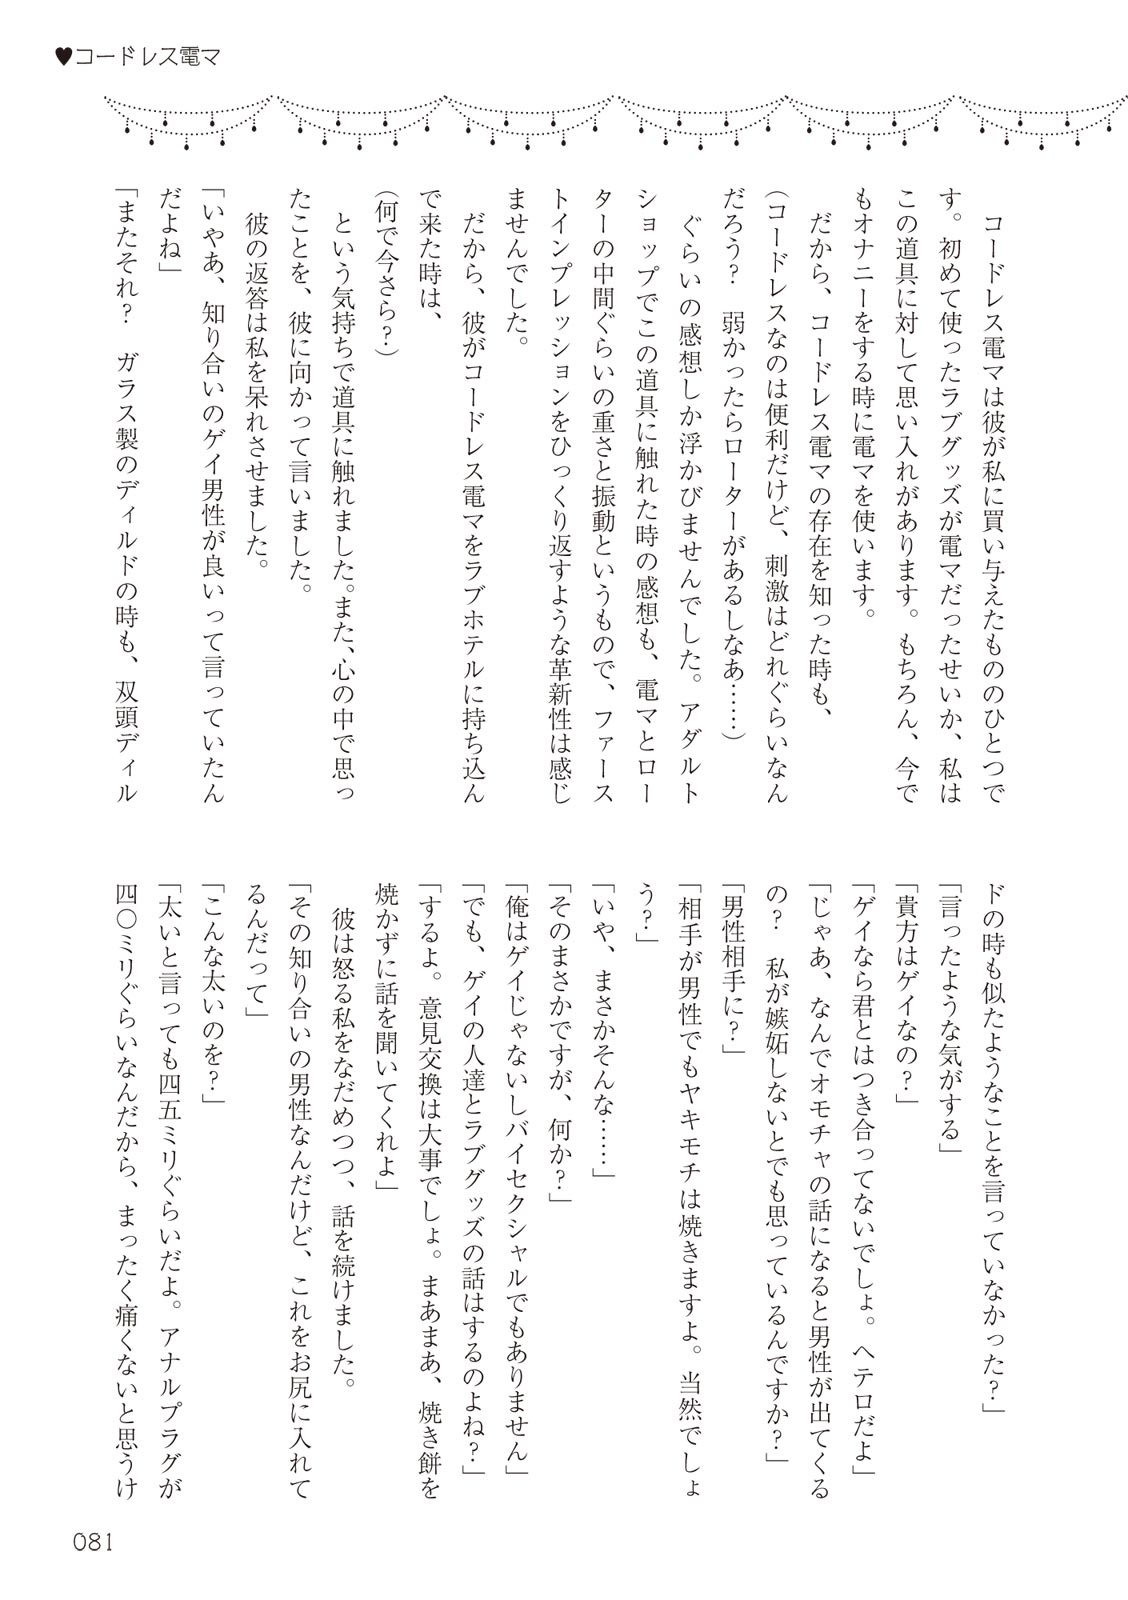 ♥コードレス電マ
　コードレス電マは彼が私に買い与えたもののひとつで
す。初めて使ったラブグッズが電マだったせいか、私は
この道具に対して思い入れがあります。もちろん、今で
もオナニーをする時に電マを使います。
　だから、コードレス電マの存在を知った時も、
（コードレスなのは便利だけど、刺激はどれぐらいなん
だろう？　弱かったらローターがあるしなあ……）
　ぐらいの感想しか浮かびませんでした。アダルト
ショップでこの道具に触れた時の感想も、電マとロー
ターの中間ぐらいの重さと振動というもので、ファース
トインプレッションをひっくり返すような革新性は感じ
ませんでした。
　だから、彼がコードレス電マをラブホテルに持ち込ん
で来た時は、
（何で今さら？）
　という気持ちで道具に触れました。また、心の中で思っ
たことを、彼に向かって言いました。
　彼の返答は私を呆れさせました。
「いやあ、知り合いのゲイ男性が良いって言っていたん
だよね」
「またそれ？　ガラス製のディルドの時も、双頭ディル
ドの時も似たようなことを言っていなかった？」
「言ったような気がする」
「貴方はゲイなの？」
「ゲイなら君とはつき合ってないでしょ。ヘテロだよ」
「じゃあ、なんでオモチャの話になると男性が出てくる
の？　私が嫉妬しないとでも思っているんですか？」
「男性相手に？」
「相手が男性でもヤキモチは焼きますよ。当然でしょ
う？」
「いや、まさかそんな……」
「そのまさかですが、何か？」
「俺はゲイじゃないしバイセクシャルでもありません」
「でも、ゲイの人達とラブグッズの話はするのよね？」
「するよ。意見交換は大事でしょ。まあまあ、焼き餅を
焼かずに話を聞いてくれよ」
　彼は怒る私をなだめつつ、話を続けました。
「その知り合いの男性なんだけど、これをお尻に入れて
るんだって」
「こんな太いのを？」
「太いと言っても四五ミリぐらいだよ。アナルプラグが
四〇ミリぐらいなんだから、まったく痛くないと思うけ
081